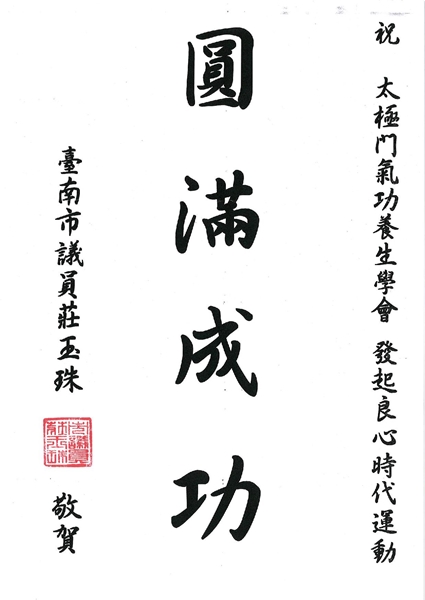 祝 太極門氣功養生學會 發起良心時代運動
圓滿成功
臺南市議員莊玉珠 敬賀